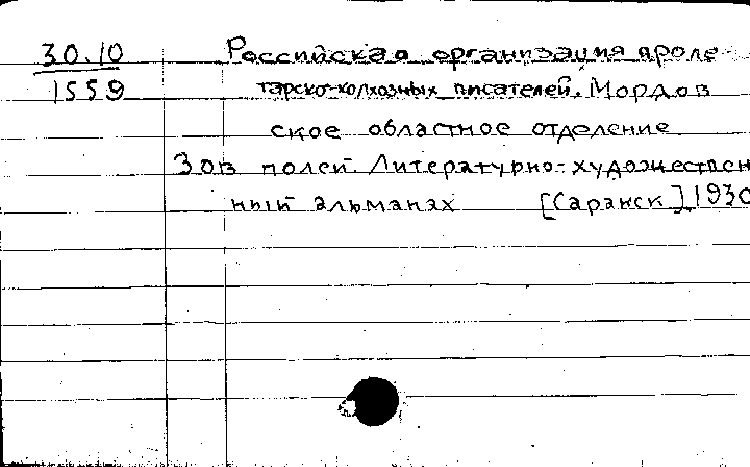 30.10 Российская организация проле-
1559 тарско-колхозных писателей. Мордов
ское областное отделение.
Зов полей. Литературно-художествен
ный альманах [Саранск] 1930